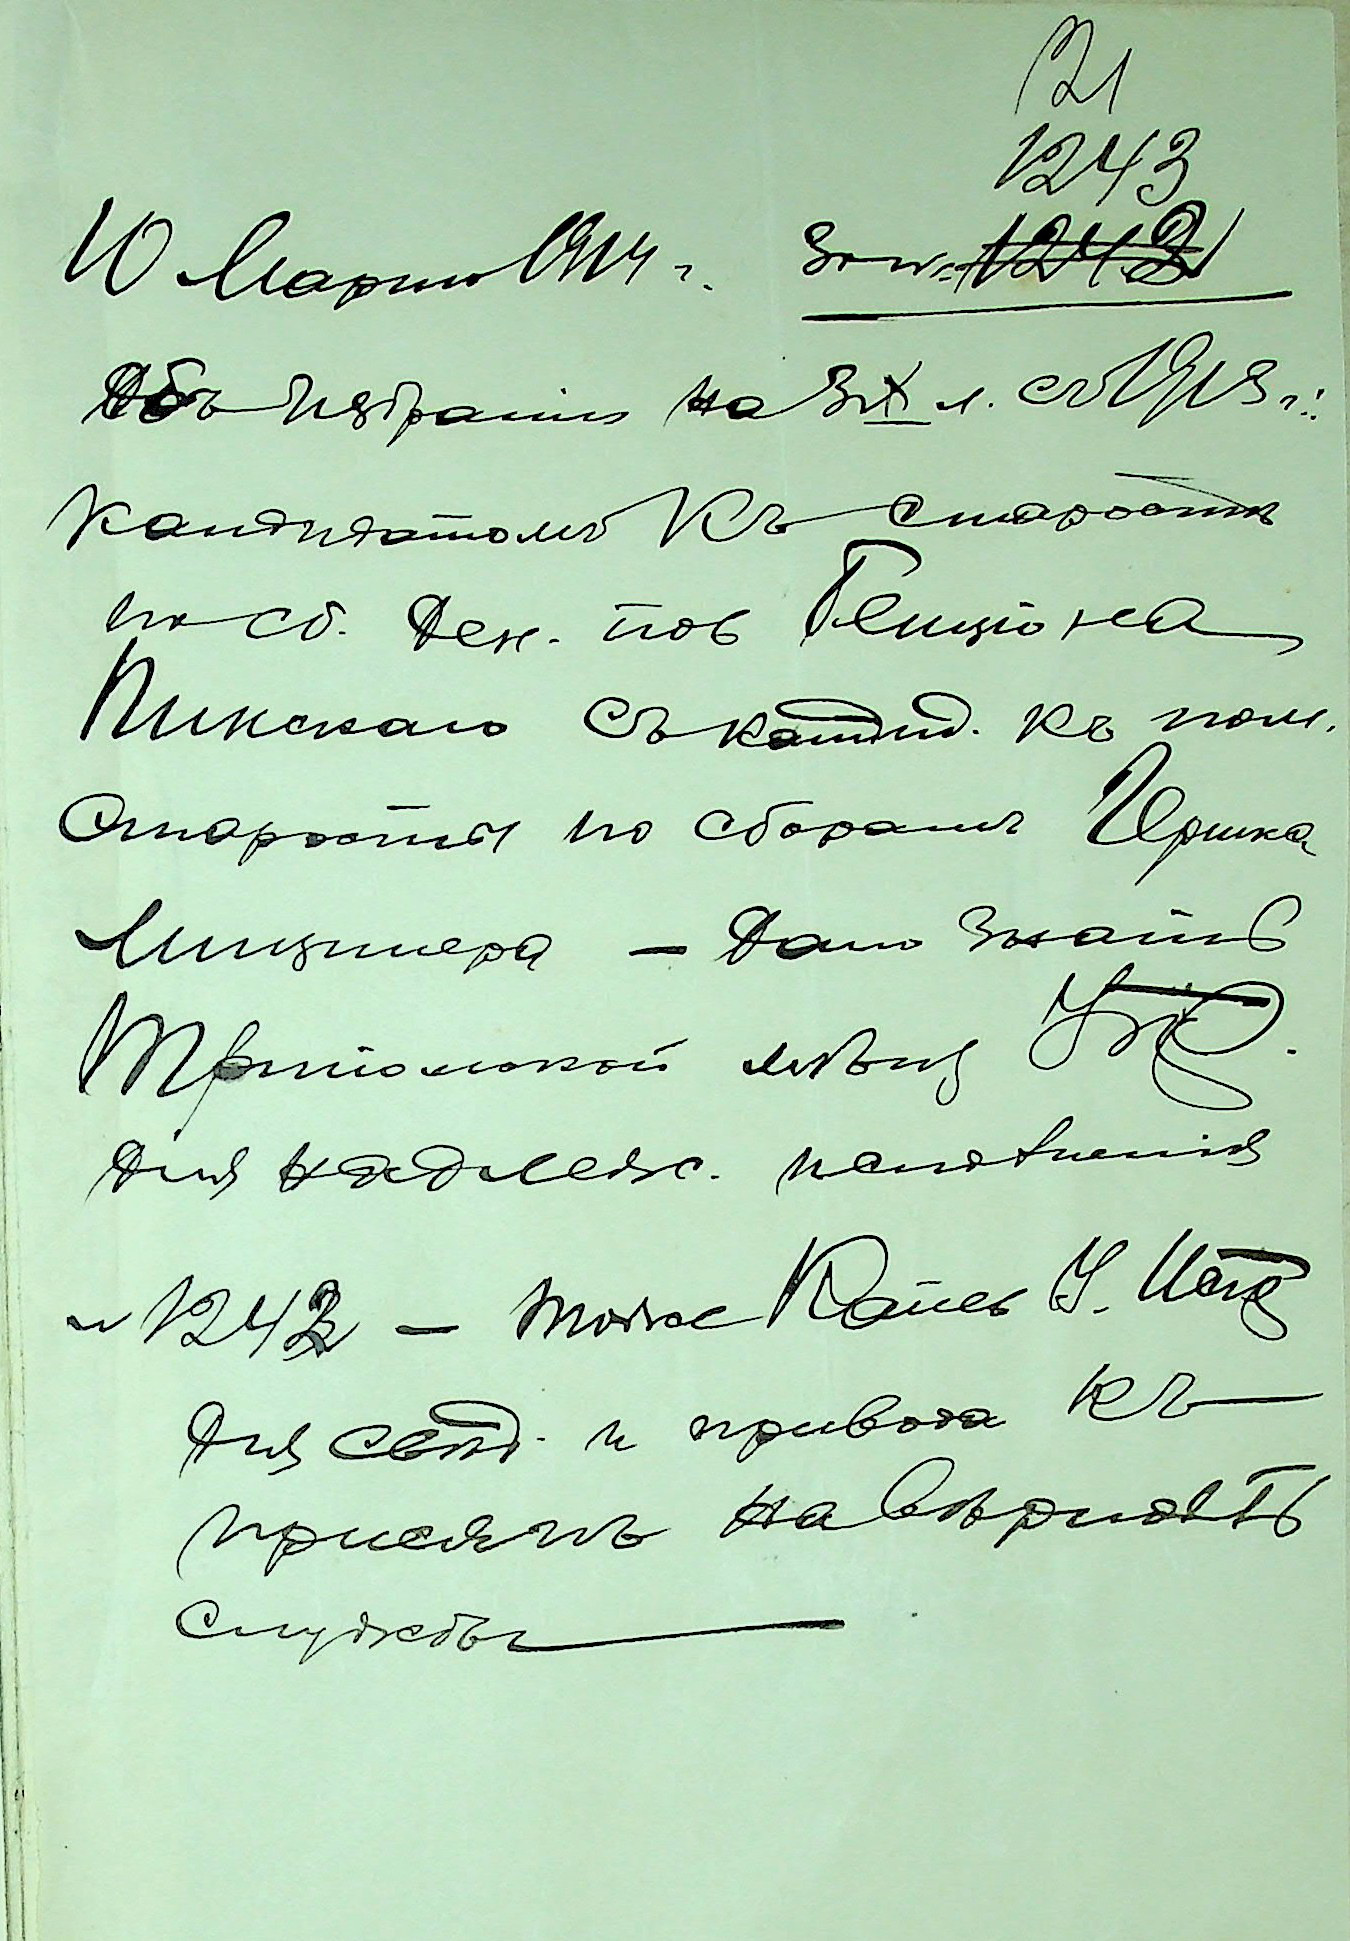 21
1243
10 Марта 1914 г. За № 1242
Объ избраніи на 3х л. съ 1913 г.:
кандидатомъ къ старостѣ
по сб. ден. пов
Пинскаго съ кандид. къ пом.
старосты по сборамъ Иршка
Лицмера — Дано знать
мѣщ Упр.
для надлеж. исполненія
№ 1242 — тоже Канев У. Исп
для свѣд. и привода къ
присягѣ на вѣрность
службы